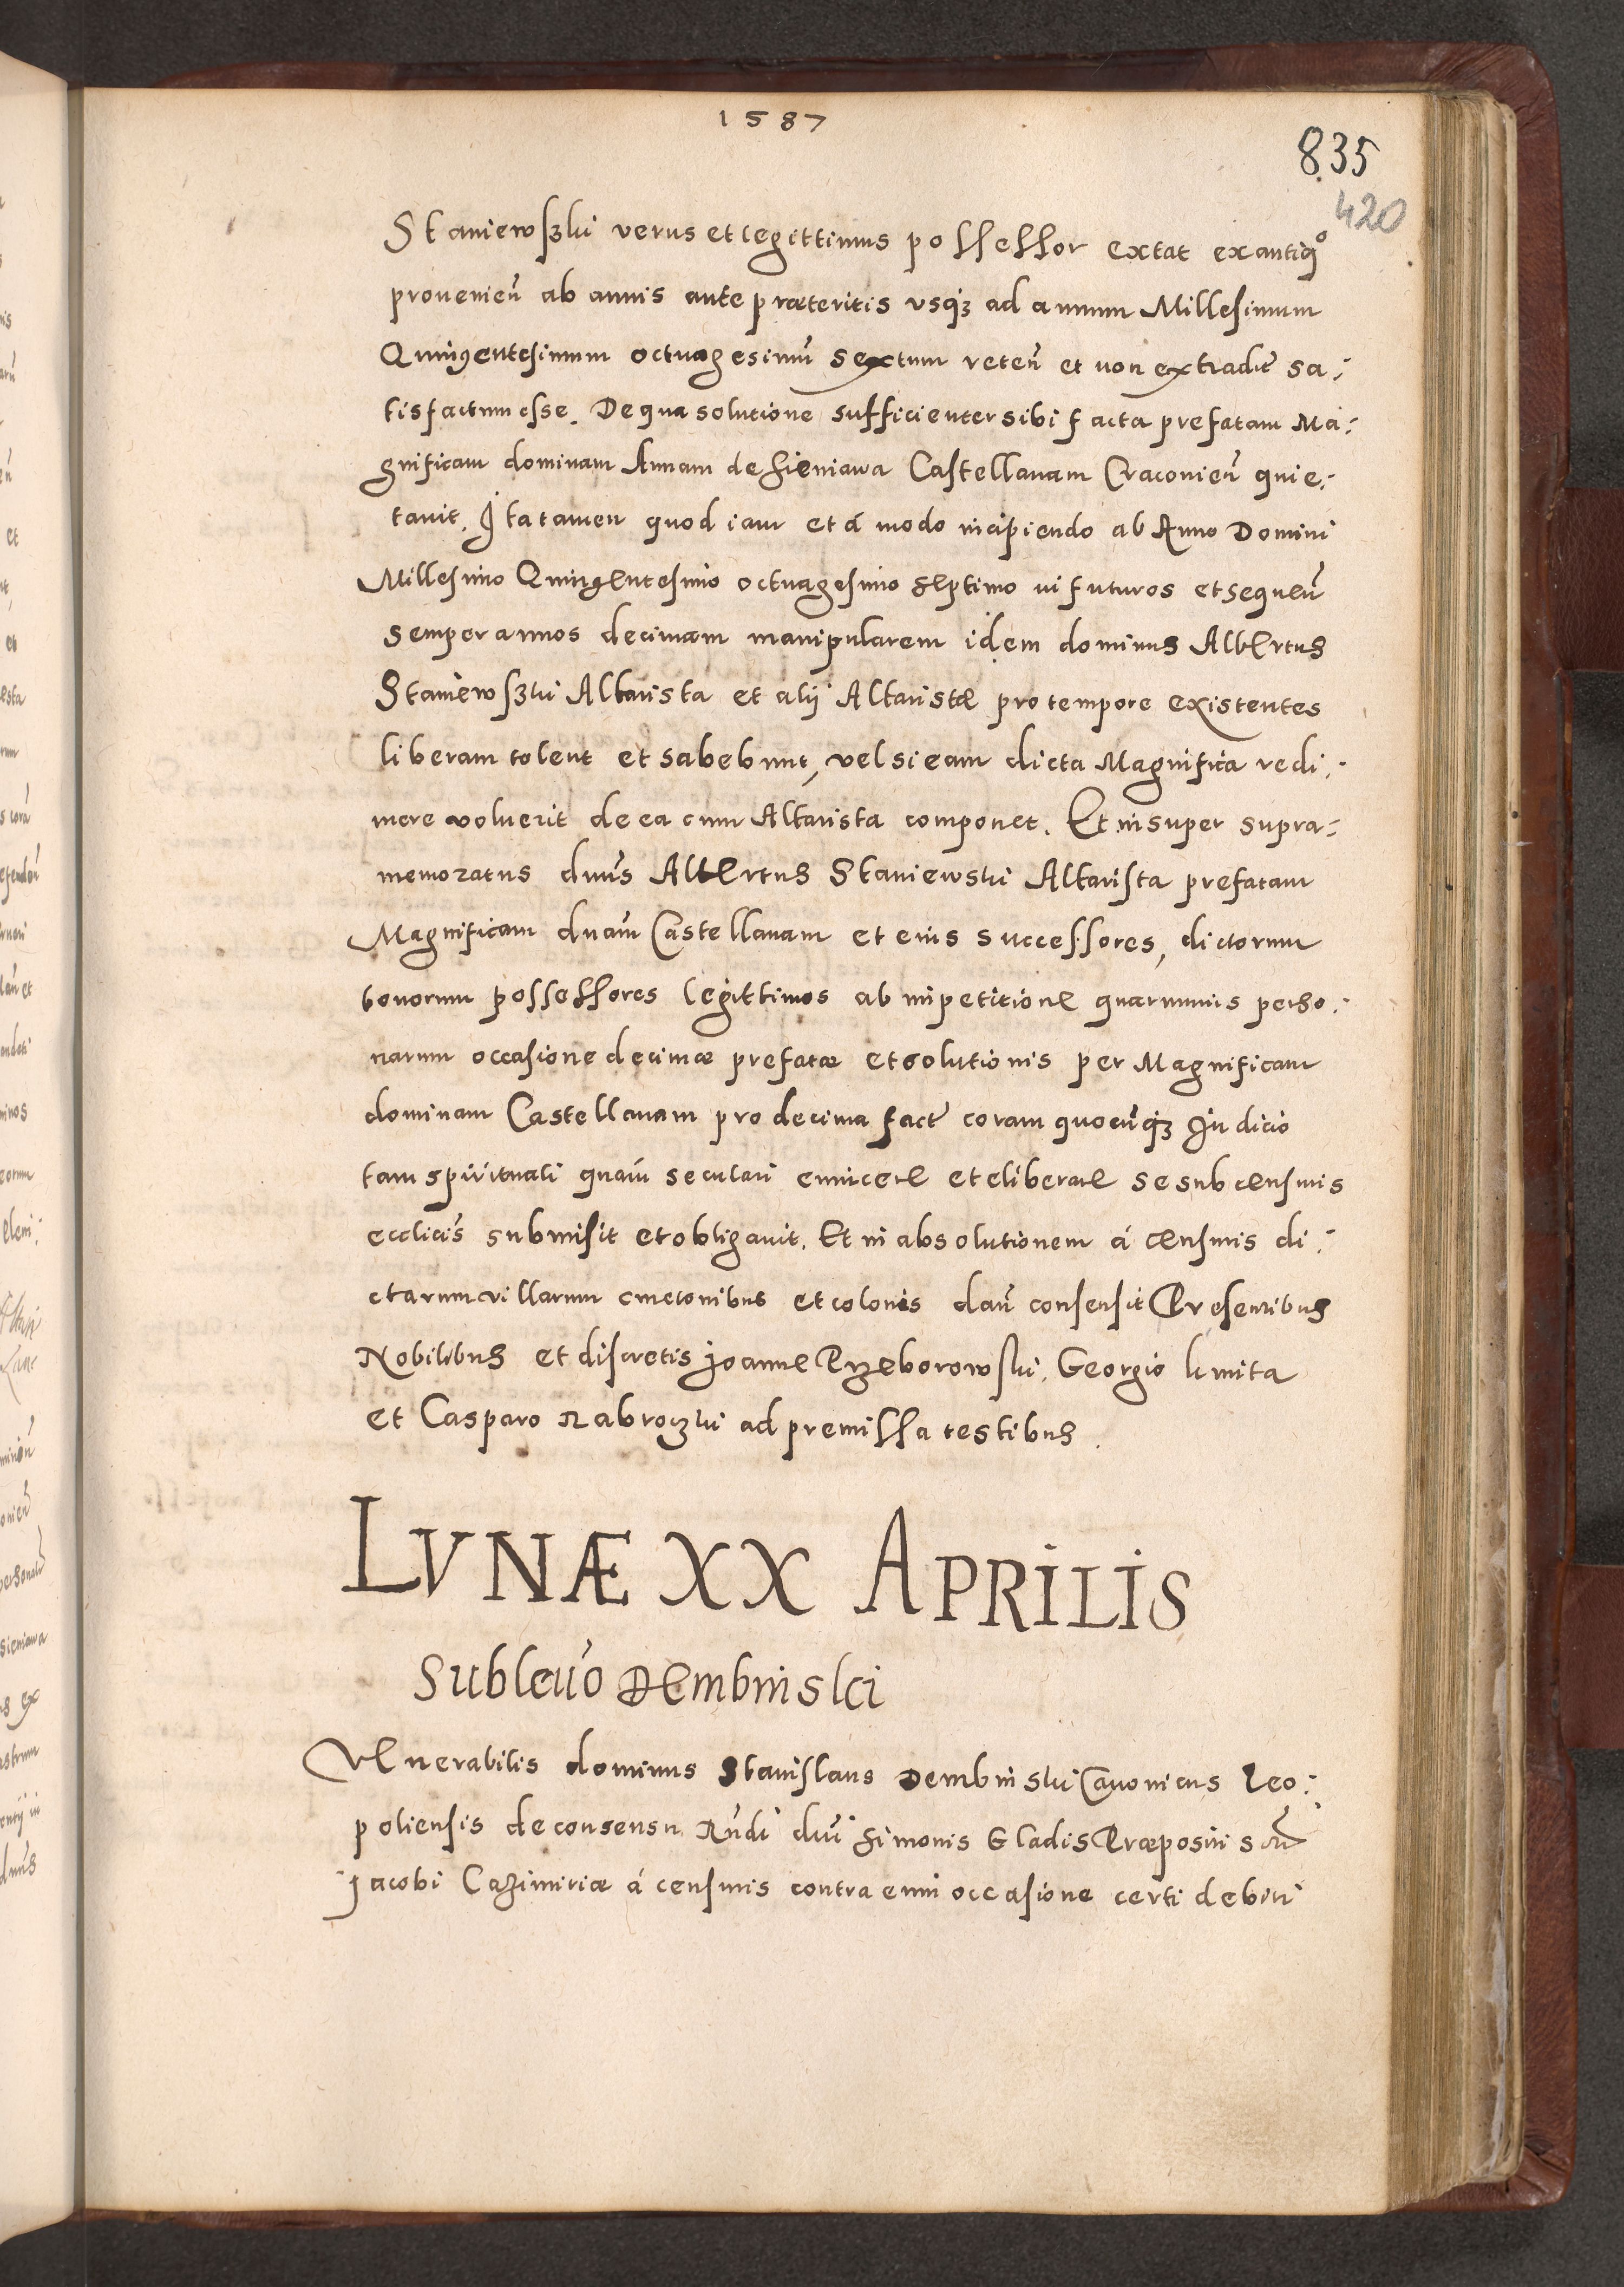 1587
835
420
Staniewſzki verus et legittimus poſſeſſor extat ex antiqº
provenien̄ ab annis ante præteritis vsq₃ ad annum Milleſimum
Quingentesimum octuagesimū sextum reten̄ et non extradit̄ sa:
tisfactum esse. De qua solutione sufficienter sibi facta prefatam Ma:
gnificam dominam Annam de Sieniawa Caſtellanam Cracovien̄ quie:
tauit. Ita tamen quod iam et á modo incipiendo ab Anno Domini
Millesimo Quingentesimo octuagesimo septimo in futuros et sequen̄
semper annos decimam manipularem idem dominus Albertus
Staniewſzki Altarista et alij Altaristæ pro tempore existentes
liberam tolent et sabebunt, vel si eam dicta Magnifica redi:
mere voluerit de ea cum Altarista componet. Et insuper supra:
memoratus dnūs Albertus Staniewski Altariſta prefatam
Magnificam dnām Castellanam et eius succeſſores, dictorum
bonorum poſseſſores legittimos ab impetitione quarumuis perso:
narum occaſione decimæ prefatæ et solutionis per Magnificam
dominam Castellanam pro decima fact̄ coram quocūq₃ Iudicio
tam spirituali quam seculari euincere et eliberare se sub censuris
eccliĉis submiſit et obligauit. Et in absolutionem á censuris di:
ctarum villarum cmetonibus et colonis dan̄ consensit Presentibus
Nobilibus et discretis Joanne Przeborowſki, Georgio kmita
et Casparo Nabroczki ad premiſſa testibus.
LVNÆ XX APRILIS
Sublevo Dembinski
Venerabilis dominus Staniſlaus Dembinski Canonicus Leo:
poliensis de consensu Rn̄di dni Simonis Gladis Præpositi scti
Jacobi Cazimiriæ á censuris contra eum occaſione certi debiti